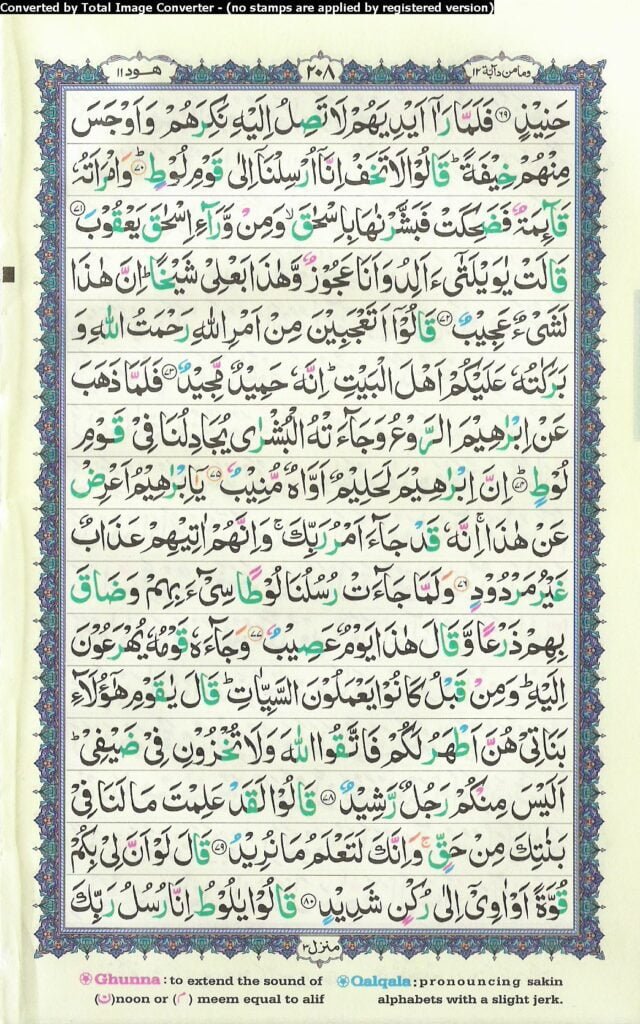 Converted by Total Image Converter - (no stamps are applied by registered version)
وما من دآبة ١٢
٢٠٨
هود ١١
حَنِيْذٍ ۶۹ فَلَمَّا رَاٰۤ اَيْدِيَهُمْ لَا تَصِلُ اِلَيْهِ نَكِرَهُمْ وَاَوْجَسَ
مِنْهُمْ خِيْفَةً ؕ قَالُوْا لَا تَخَفْ اِنَّاۤ اُرْسِلْنَاۤ اِلٰى قَوْمِ لُوْطٍ ؕ ۷۰ وَامْرَاَتُهٗ
قَآئِمَةٌ فَضَحِكَتْ فَبَشَّرْنٰهَا بِاِسْحٰقَ ۙ وَمِنْ وَّرَآءِ اِسْحٰقَ يَعْقُوْبَ ۷۱
قَالَتْ يٰوَيْلَتٰٓى ءَاَلِدُ وَاَنَا عَجُوْزٌ وَّهٰذَا بَعْلِيْ شَيْخًا ؕ اِنَّ هٰذَا
لَشَيْءٌ عَجِيْبٌ ۷۲ قَالُوْۤا اَتَعْجَبِيْنَ مِنْ اَمْرِ اللّٰهِ رَحْمَتُ اللّٰهِ وَ
بَرَكٰتُهٗ عَلَيْكُمْ اَهْلَ الْبَيْتِ ؕ اِنَّهٗ حَمِيْدٌ مَّجِيْدٌ ۷۳ فَلَمَّا ذَهَبَ
عَنْ اِبْرٰهِيْمَ الرَّوْعُ وَجَآءَتْهُ الْبُشْرٰى يُجَادِلُنَا فِيْ قَوْمِ
لُوْطٍ ؕ ۷۴ اِنَّ اِبْرٰهِيْمَ لَحَلِيْمٌ اَوَّاهٌ مُّنِيْبٌ ۷۵ يٰۤاِبْرٰهِيْمُ اَعْرِضْ
عَنْ هٰذَا ۚ اِنَّهٗ قَدْ جَآءَ اَمْرُ رَبِّكَ ۚ وَاِنَّهُمْ اٰتِيْهِمْ عَذَابٌ
غَيْرُ مَرْدُوْدٍ ۷۶ وَلَمَّا جَآءَتْ رُسُلُنَا لُوْطًا سِيْٓءَ بِهِمْ وَضَاقَ
بِهِمْ ذَرْعًا وَّقَالَ هٰذَا يَوْمٌ عَصِيْبٌ ۷۷ وَجَآءَهٗ قَوْمُهٗ يُهْرَعُوْنَ
اِلَيْهِ ؕ وَمِنْ قَبْلُ كَانُوْا يَعْمَلُوْنَ السَّيِّاٰتِ ؕ قَالَ يٰقَوْمِ هٰٓؤُلَآءِ
بَنَاتِيْ هُنَّ اَطْهَرُ لَكُمْ فَاتَّقُوا اللّٰهَ وَلَا تُخْزُوْنِ فِيْ ضَيْفِيْ ؕ
اَلَيْسَ مِنْكُمْ رَجُلٌ رَّشِيْدٌ ۷۸ قَالُوْا لَقَدْ عَلِمْتَ مَا لَنَا فِيْ
بَنٰتِكَ مِنْ حَقٍّ ۚ وَاِنَّكَ لَتَعْلَمُ مَا نُرِيْدُ ۷۹ قَالَ لَوْ اَنَّ لِيْ بِكُمْ
قُوَّةً اَوْ اٰوِيْۤ اِلٰى رُكْنٍ شَدِيْدٍ ۸۰ قَالُوْا يٰلُوْطُ اِنَّا رُسُلُ رَبِّكَ
منزل ٣
Ghunna : to extend the sound of (ن) noon or (م) meem equal to alif
Qalqala : pronouncing sakin alphabets with a slight jerk.